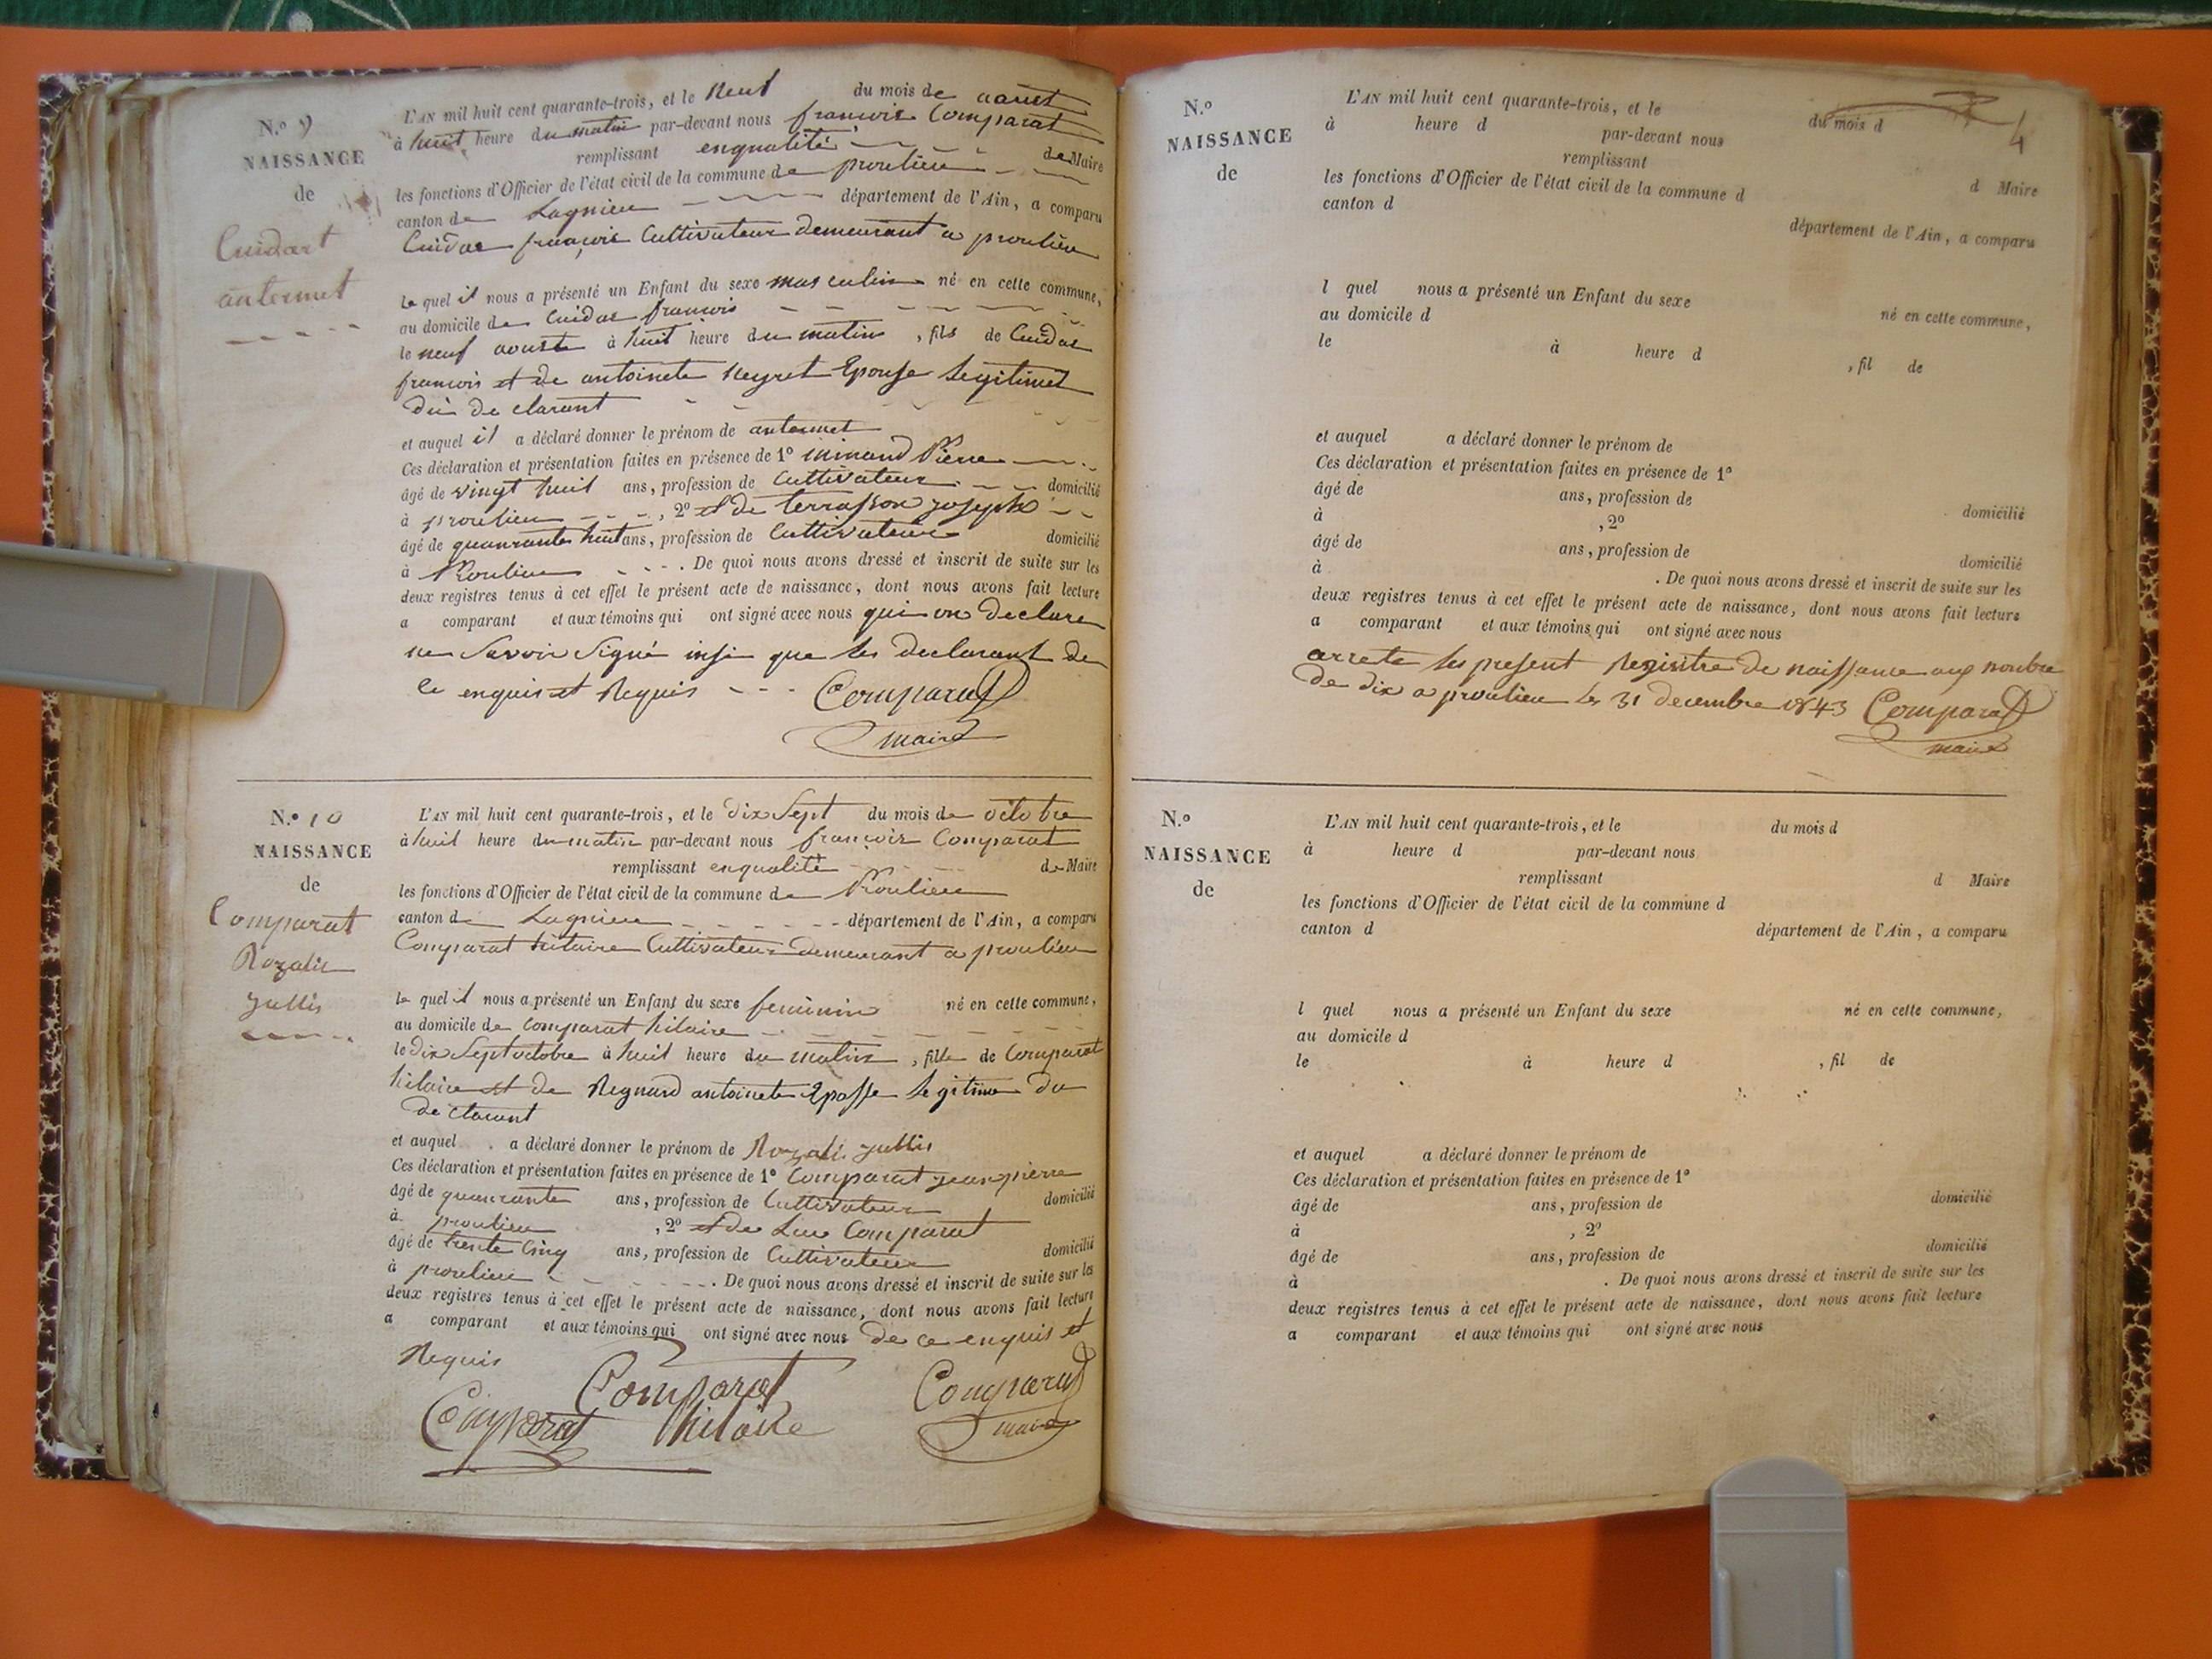 N.º 9
NAISSANCE
de
Cuidart
antermet
L'AN mil huit cent quarante-trois, et le neuf du mois de aoust
à huit heure du matin par-devant nous francois Comparat
remplissant enqualité de Maire
les fonctions d'Officier de l'état civil de la commune de proulieu
canton de Lagnieu département de l'Ain, a comparu
Cuidat françois Cultivateur demeurant a proulieu
le quel il nous a présenté un Enfant du sexe masculin né en cette commune,
au domicile de Cuidat francois
le neuf aouste à huit heure du matin, fils de Cuidat
francois et de antoinete Neyret Epouse legitimet
du de clarant
et auquel il a déclaré donner le prénom de antermet
Ces déclaration et présentation faites en présence de 1º Pierre
âgé de vingt huit ans, profession de Cultivateur domicilié
à proulieu, 2º et de terrasson joseph
âgé de quanrante huit ans, profession de Cultivateur domicilié
à Proulieu. De quoi nous avons dressé et inscrit de suite sur les
deux registres tenus à cet effet le présent acte de naissance, dont nous avons fait lecture
a comparant et aux témoins qui ont signé avec nous qui on declare
ne Savoir Signé insi que les declarant de
ce enquis et Requis Comparat
maire
N.º 10
NAISSANCE
de
Comparat
Rozalie
jullis
L'AN mil huit cent quarante-trois, et le dix Sept du mois de octobre
à huit heure du matin par-devant nous françois Comparat
remplissant enqualité de Maire
les fonctions d'Officier de l'état civil de la commune de Proulieu
canton de Lagnieu département de l'Ain, a comparu
Comparat hilaire Cultivateur demeurant a proulieu
le quel il nous a présenté un Enfant du sexe feminin né en cette commune,
au domicile de Comparat hilaire
le dix Sept octobre à huit heure du matin, fille de Comparat
hilaire et de Regnard antoinete Eposse legitime du
de clarant
et auquel a déclaré donner le prénom de Rozali jullis
Ces déclaration et présentation faites en présence de 1º Comparat jeanpierre
âgé de quanrante ans, profession de Cultivateur domicilié
à proulieu, 2º et de Luc Comparat
âgé de trente Cinq ans, profession de Cultivateur domicilié
à proulieu. De quoi nous avons dressé et inscrit de suite sur les
deux registres tenus à cet effet le présent acte de naissance, dont nous avons fait lecture
a comparant et aux témoins qui ont signé avec nous de ce enquis et
Requis
Comparat Comparat
Comparat hilaire maire
4
N.º
NAISSANCE
de
L'AN mil huit cent quarante-trois, et le du mois d
à heure d par-devant nous
remplissant d Maire
les fonctions d'Officier de l'état civil de la commune d
canton d département de l'Ain, a comparu
l quel nous a présenté un Enfant du sexe né en cette commune,
au domicile d
le à heure d, fil de
et auquel a déclaré donner le prénom de
Ces déclaration et présentation faites en présence de 1º
âgé de ans, profession de domicilié
à, 2º
âgé de ans, profession de domicilié
à. De quoi nous avons dressé et inscrit de suite sur les
deux registres tenus à cet effet le présent acte de naissance, dont nous avons fait lecture
a comparant et aux témoins qui ont signé avec nous
arrete les present Regisitre de naissance aux nonbre
de dix a proulieu les 31 decembre 1843 Comparat
maire
N.º
NAISSANCE
de
L'AN mil huit cent quarante-trois, et le du mois d
à heure d par-devant nous
remplissant d Maire
les fonctions d'Officier de l'état civil de la commune d
canton d département de l'Ain, a comparu
l quel nous a présenté un Enfant du sexe né en cette commune,
au domicile d
le à heure d, fil de
et auquel a déclaré donner le prénom de
Ces déclaration et présentation faites en présence de 1º
âgé de ans, profession de domicilié
à, 2º
âgé de ans, profession de domicilié
à. De quoi nous avons dressé et inscrit de suite sur les
deux registres tenus à cet effet le présent acte de naissance, dont nous avons fait lecture
a comparant et aux témoins qui ont signé avec nous